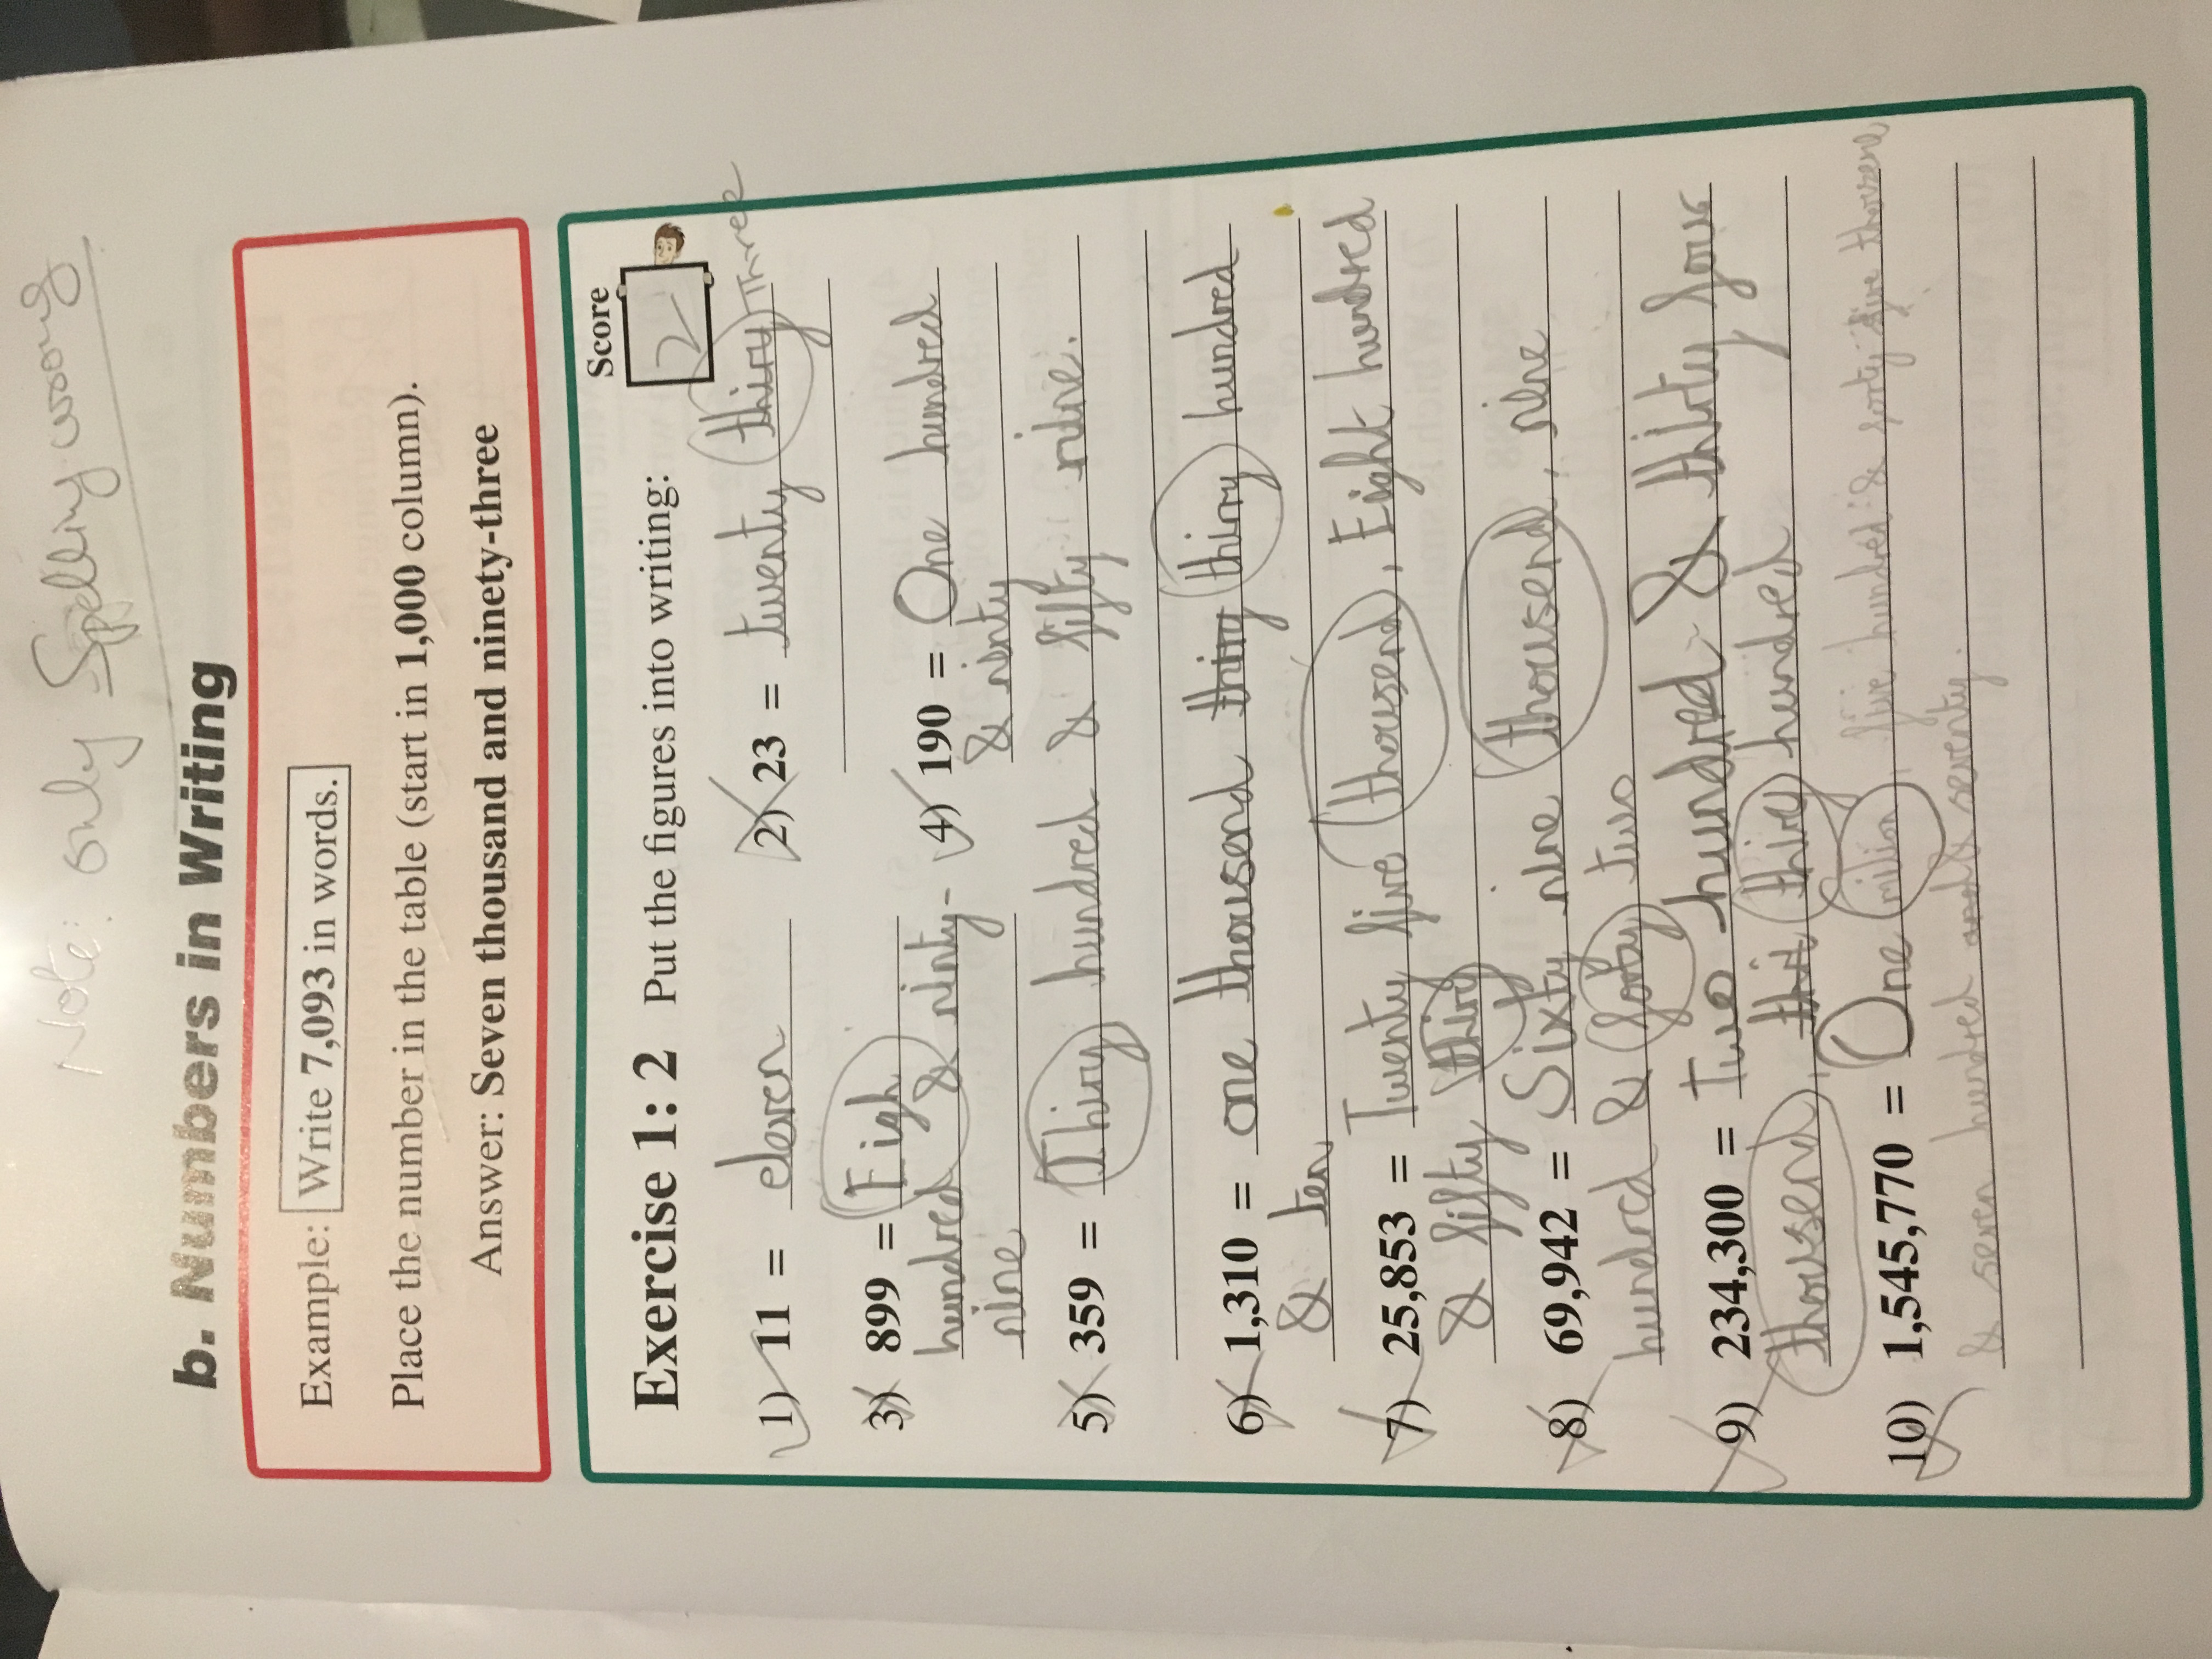 Note: only Spelling wrong
b. Numbers in Writing
Example: Write 7,093 in words.
Place the number in the table (start in 1,000 column).
Answer: Seven thousand and ninety-three
Score
Exercise 1: 2 Put the figures into writing:
2
1) 11 = eleven
2) 23 = twenty thiry Three
3) 899 = Eigh
hundred & ninty-
nine
4) 190 = One hundred
& ninty
5) 359 = Thiry hundred & fifty nine.
6) 1,310 = one thousend thiry thirry hundred
& ten
7) 25,853 = Twenty five thousend, Eight hundred
& fifty thiry
8) 69,942 = Sixty nine thousend, nine
hundred & forty two
9) 234,300 = Two hundred & thirty four
thousend, thri thiry hundred
10) 1,545,770 = One milion, five hundred & forty five thousend
& seven hundred and & seventy.